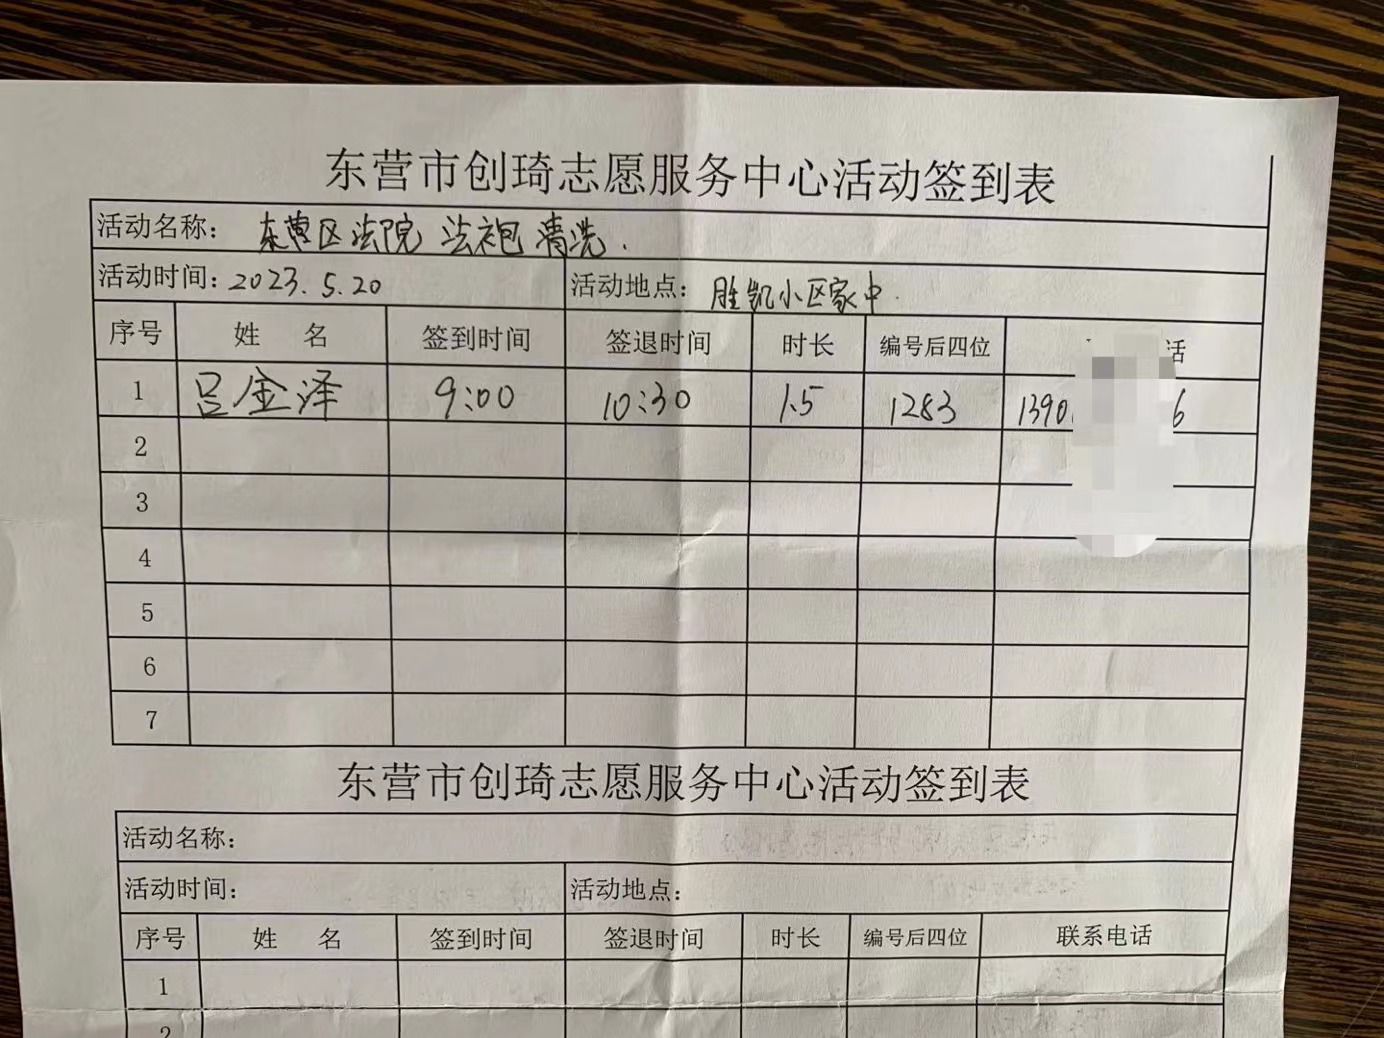 东营市创琦志愿服务中心活动签到表
活动名称： 东营区法院 法袍 清洗.
活动时间：2023.5.20 活动地点： 胜凯小区家中.
序号 姓 名 签到时间 签退时间 时长 编号后四位 话
1 吕金泽 9:00 10:30 1.5 1283 1390 6
2
3
4
5
6
7
东营市创琦志愿服务中心活动签到表
活动名称：
活动时间： 活动地点：
序号 姓 名 签到时间 签退时间 时长 编号后四位 联系电话
1
2